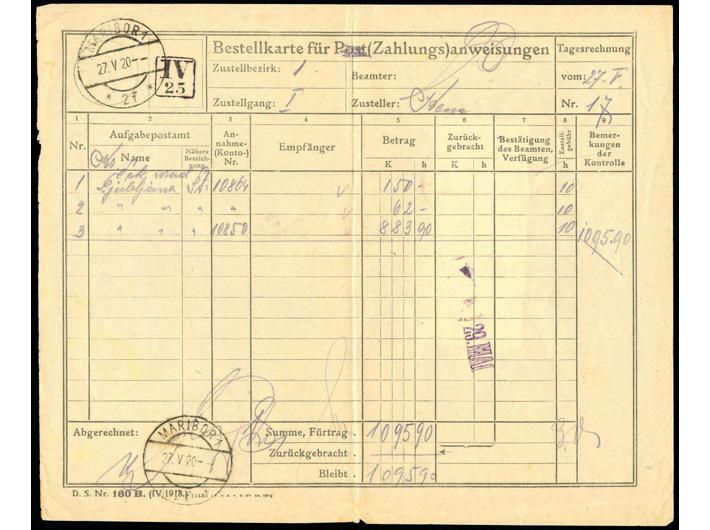 MARIBOR 1
27.V 20--
* 2f *
IV
25
Bestellkarte für Post(Zahlungs)anweisungen
Tagesrechnung
Zustellbezirk: 1
Beamter:
vom: 27.V.
Zustellgang: I
Zusteller:
Nr. 17
1 2 3 4 5 6 7 8 9
Nr.
Aufgabepostamt
Name
Nähere Bezeichg.
Annahme- (Konto-) Nr.
Empfänger
Betrag
K h
Zurückgebracht
K h
Bestätigung des Beamten, Verfügung
Zustellgebühr
Bemerkungen der Kontrolle
1 Ljubljana 10864 150 - 10
2 " " " " 62 - 10
3 " " " 10850 883 90 10 1095.90
29. MAI
Abgerechnet:
MARIBOR 1
27.V 20-
Summe, Fürtrag . 1095 90
Zurückgebracht .
Bleibt . 1095 90
D. S. Nr. 160 B. (IV. 1918.)